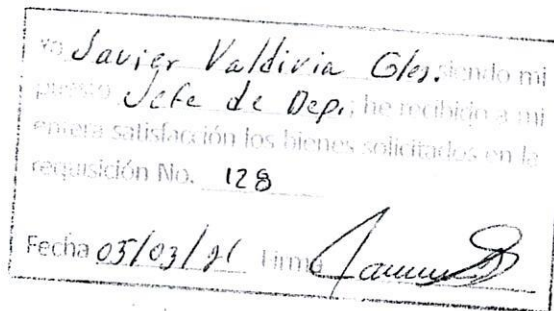 Yo Javier Valdivia Glez. siendo mi
puesto Jefe de Dep.; he recibido a mi
entera satisfacción los bienes solicitados en la
requisición No. 128
Fecha 05/03/21 Firma